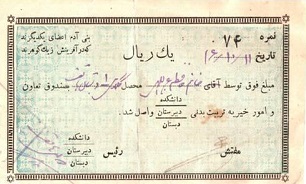 نمره ۷۴
تاریخ ۱۱/۱۰/۱۶
یک ریال
بنی آدم اعضای یکدیگرند
که در آفرینش ز یک گوهرند
مبلغ فوق توسط آقای محصل بصندوق تعاون
و امور خیریه تربیت بدنی دانشکده دبیرستان دبستان واصل شد.
مفتش
رئیس دانشکده دبیرستان دبستان